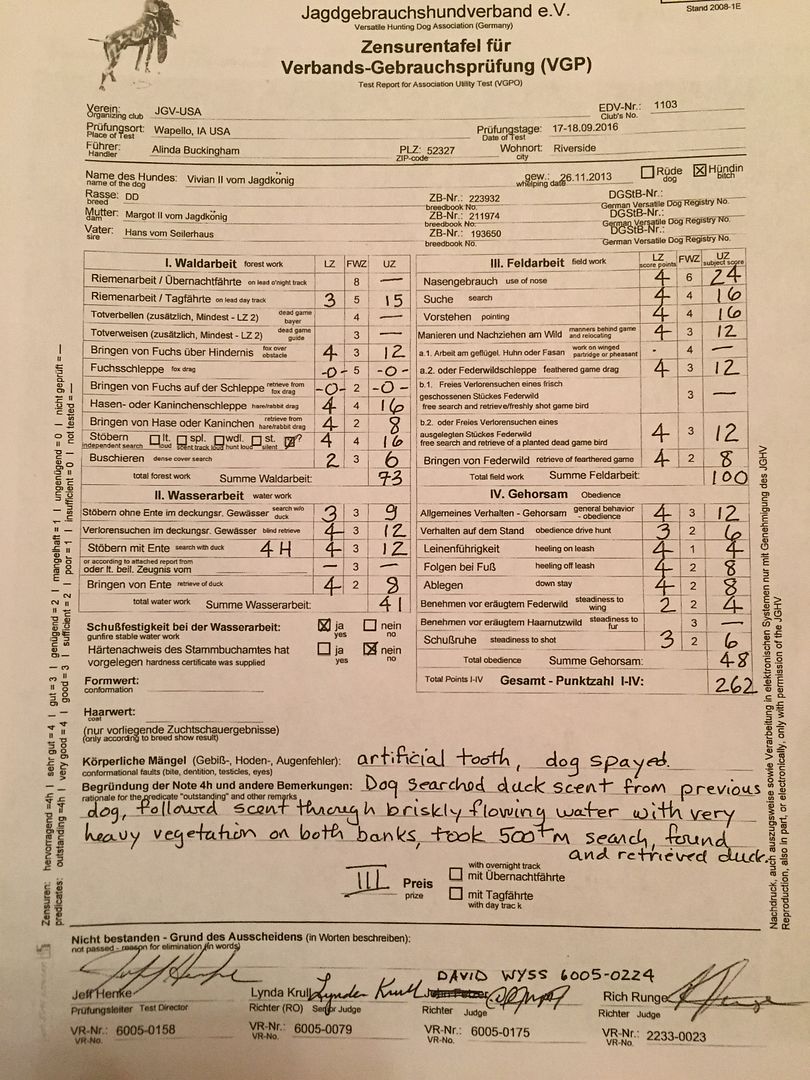 Stand 2008-1E
Jagdgebrauchshundverband e.V.
Versatile Hunting Dog Association (Germany)
Zensurentafel für
Verbands-Gebrauchsprüfung (VGP)
Test Report for Association Utility Test (VGPO)
Verein: JGV-USA EDV-Nr.: 1103
Organizing club Club's No.
Prüfungsort: Wapello, IA USA Prüfungstage: 17-18.09.2016
Place of Test Date of Test
Führer: Alinda Buckingham PLZ: 52327 Wohnort: Riverside
Handler ZIP-code city
Name des Hundes: Vivian II vom Jagdkönig gew.: 26.11.2013 Rüde ☒ Hündin
name of the dog whelping date dog bitch
Rasse: DD ZB-Nr.: 223932 DGStB-Nr.:
breed breedbook No. German Versatile Dog Registry No.
Mutter: Margot II vom Jagdkönig ZB-Nr.: 211974 DGStB-Nr.:
dam breedbook No. German Versatile Dog Registry No.
Vater: Hans vom Seilerhaus ZB-Nr.: 193650 DGStB-Nr.:
sire breedbook No. German Versatile Dog Registry No.
I. Waldarbeit forest work LZ FWZ UZ
Riemenarbeit / Übernachtfährte on lead o'night track 8 —
Riemenarbeit / Tagfährte on lead day track 3 5 15
Totverbellen (zusätzlich, Mindest - LZ 2) dead game bayer 4 —
Totverweisen (zusätzlich, Mindest - LZ 2) dead game guide 3 —
Bringen von Fuchs über Hindernis fox over obstacle 4 3 12
Fuchsschleppe fox drag -0- 5 -0-
Bringen von Fuchs auf der Schleppe retrieve from fox drag -0- 2 -0-
Hasen- oder Kaninchenschleppe hare/rabbit drag 4 4 16
Bringen von Hase oder Kaninchen retrieve from hare/rabbit drag 4 2 8
Stöbern lt. spl. wdl. st. ☒? 4 4 16
independent search loud scent track loud hunt loud silent
Buschieren dense cover search 2 3 6
total forest work Summe Waldarbeit: 73
II. Wasserarbeit water work
Stöbern ohne Ente im deckungsr. Gewässer search w/o duck 3 3 9
Verlorensuchen im deckungsr. Gewässer blind retrieve 4 3 12
Stöbern mit Ente search with duck 4H 4 3 12
or according to attached report from
oder lt. beil. Zeugnis vom — 3 —
Bringen von Ente retrieve of duck 4 2 8
total water work Summe Wasserarbeit: 41
Schußfestigkeit bei der Wasserarbeit: ☒ ja nein
gunfire stable water work yes no
Härtenachweis des Stammbuchamtes hat ja ☒ nein
vorgelegen hardness certificate was supplied yes no
Formwert:
conformation
Haarwert:
coat
(nur vorliegende Zuchtschauergebnisse)
(only according to breed show result)
III. Feldarbeit field work LZ score points FWZ UZ subject score
Nasengebrauch use of nose 4 6 24
Suche search 4 4 16
Vorstehen pointing 4 4 16
Manieren und Nachziehen am Wild manners behind game and relocating 4 3 12
a.1. Arbeit am geflügel. Huhn oder Fasan work on winged partridge or pheasant - 4 —
a.2. oder Federwildschleppe feathered game drag 4 3 12
b.1. Freies Verlorensuchen eines frisch
geschossenen Stückes Federwild 3 —
free search and retrieve/freshly shot game bird
b.2. oder Freies Verlorensuchen eines
ausgelegten Stückes Federwild 4 3 12
free search and retrieve of a planted dead game bird
Bringen von Federwild retrieve of fearthered game 4 2 8
Total field work Summe Feldarbeit: 100
IV. Gehorsam Obedience
Allgemeines Verhalten - Gehorsam general behavior - obedience 4 3 12
Verhalten auf dem Stand obedience drive hunt 3 2 6
Leinenführigkeit heeling on leash 4 1 4
Folgen bei Fuß heeling off leash 4 2 8
Ablegen down stay 4 2 8
Benehmen vor eräugtem Federwild steadiness to wing 2 2 4
Benehmen vor eräugtem Haarnutzwild steadiness to fur 3 —
Schußruhe steadiness to shot 3 2 6
Total obedience Summe Gehorsam: 48
Total Points I-IV Gesamt - Punktzahl I-IV: 262
Körperliche Mängel (Gebiß-, Hoden-, Augenfehler): artificial tooth, dog spayed.
conformational faults (bite, dentition, testicles, eyes)
Begründung der Note 4h und andere Bemerkungen: Dog searched duck scent from previous
rationale for the predicate "outstanding" and other remarks
dog, followed scent through briskly flowing water with very
heavy vegetation on both banks, took 500+m search, found
and retrieved duck.
III Preis
prize
with overnight track
mit Übernachtfährte
mit Tagfährte
with day track
Nicht bestanden - Grund des Ausscheidens (in Worten beschreiben):
not passed - reason for elimination (in words)
DAVID WYSS 6005-0224
Jeff Henke Lynda Krull Rich Runge
Prüfungsleiter Test Director Richter (RO) Senior Judge Richter Judge Richter Judge
VR-Nr.: 6005-0158 VR-Nr.: 6005-0079 VR-Nr.: 6005-0175 VR-Nr.: 2233-0023
VR-No. VR-No. VR-No. VR-No.
Zensuren: hervorragend =4h | sehr gut = 4 | gut = 3 | genügend = 2 | mangelhaft = 1 | ungenügend = 0 | nicht geprüft = —
predicates: outstanding =4h | very good = 4 | good = 3 | sufficient = 2 | poor = 1 | insufficient = 0 | not tested = —
Nachdruck, auch auszugsweise sowie Verarbeitung in elektronischen Systemen nur mit Genehmigung des JGHV
Reproduction, also in part, or electronically, only with permission of the JGHV